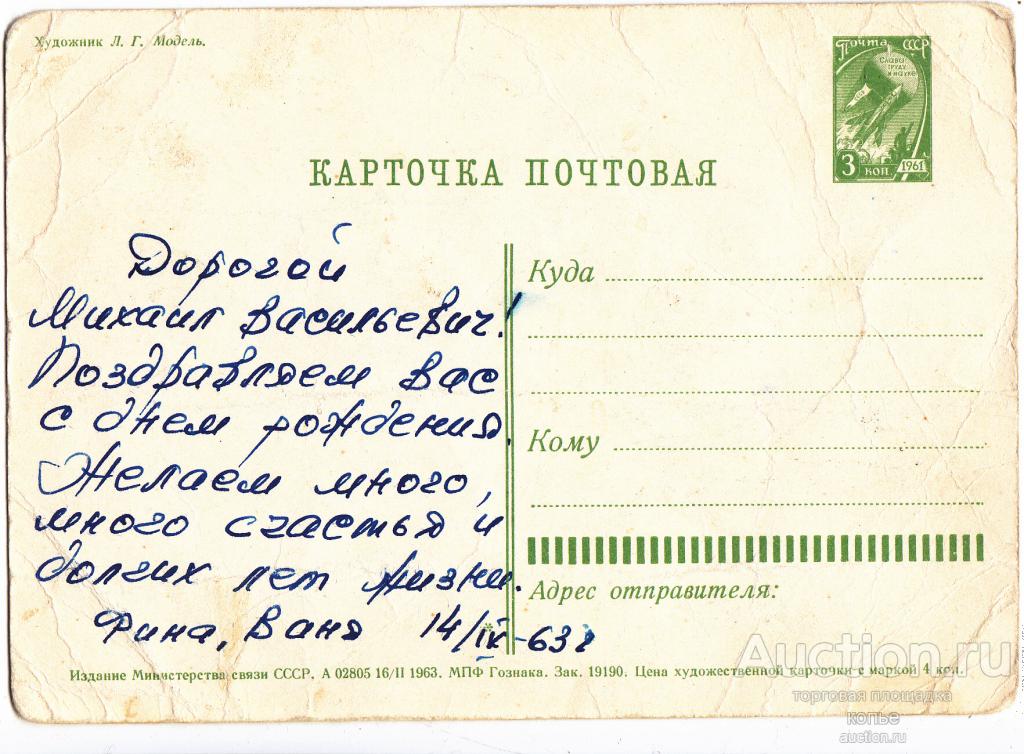 Художник Л. Г. Модель.
Почта СССР
Слава
труду
и науке
3 коп. 1961
КАРТОЧКА ПОЧТОВАЯ
Дорогой
Михаил Васильевич!
Поздравляем вас
с днем рождения.
Желаем много,
много счастья и
долгих лет жизни.
Фина, Ваня 14/IV-63 г
Куда
Кому
Адрес отправителя:
Издание Министерства связи СССР. А 02805 16/II 1963. МПФ Гознака. Зак. 19190. Цена художественной карточки с маркой 4 коп.
Auction.ru
торговая площадка
копье
auction.ru